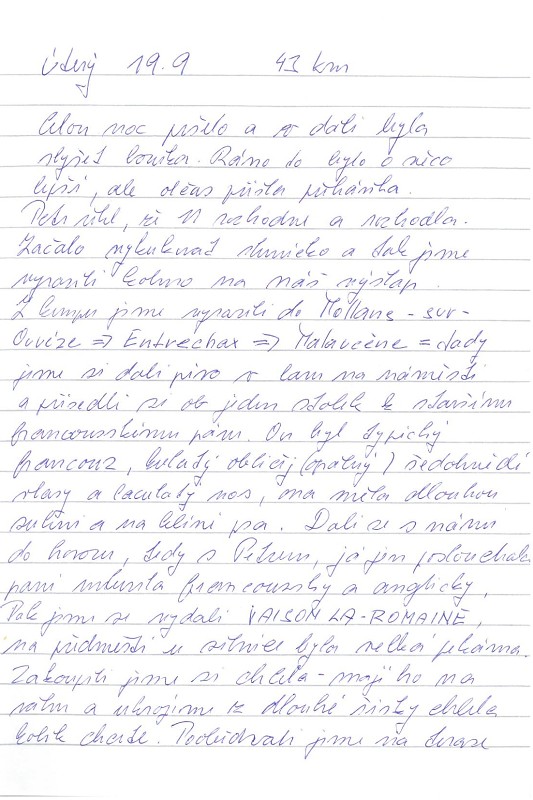 Úterý 19.9 43 km
Celou noc pršelo a v dáli byla
slyšet bouřka. Ráno to bylo o něco
lepší, ale občas přišla přeháňka.
Petr řekl, ať rozhodnu a rozhodla.
Začalo vykukovat sluníčko a tak jsme
vyrazili kolmo na náš výšlap.
Z kempu jsme vyrazili do Mollans-sur-
Ouvèze => Entrechax => Malaucène = tady
jsme si dali pivo v baru na náměstí
a přisedli si ob jeden stolek k staršímu
francouzskému páru. On byl typický
francouz, kulatý obličej (opálený) šedohnědé
vlasy a baculatý nos, ona měla dlouhou
sukni a na klíně psa. Dali se s námi
do hovoru, tedy s Petrem, já jen poslouchala
paní mluvila francouzsky a anglicky.
Pak jsme se vydali VAISON LA-ROMAINE,
na předměstí u silnice byla velká pekárna.
Zakoupili jsme si chleba - mají ho na
váhu a ukrojíme z dlouhé šišky chleba
kolik chcete. Poobědvali jsme na terase